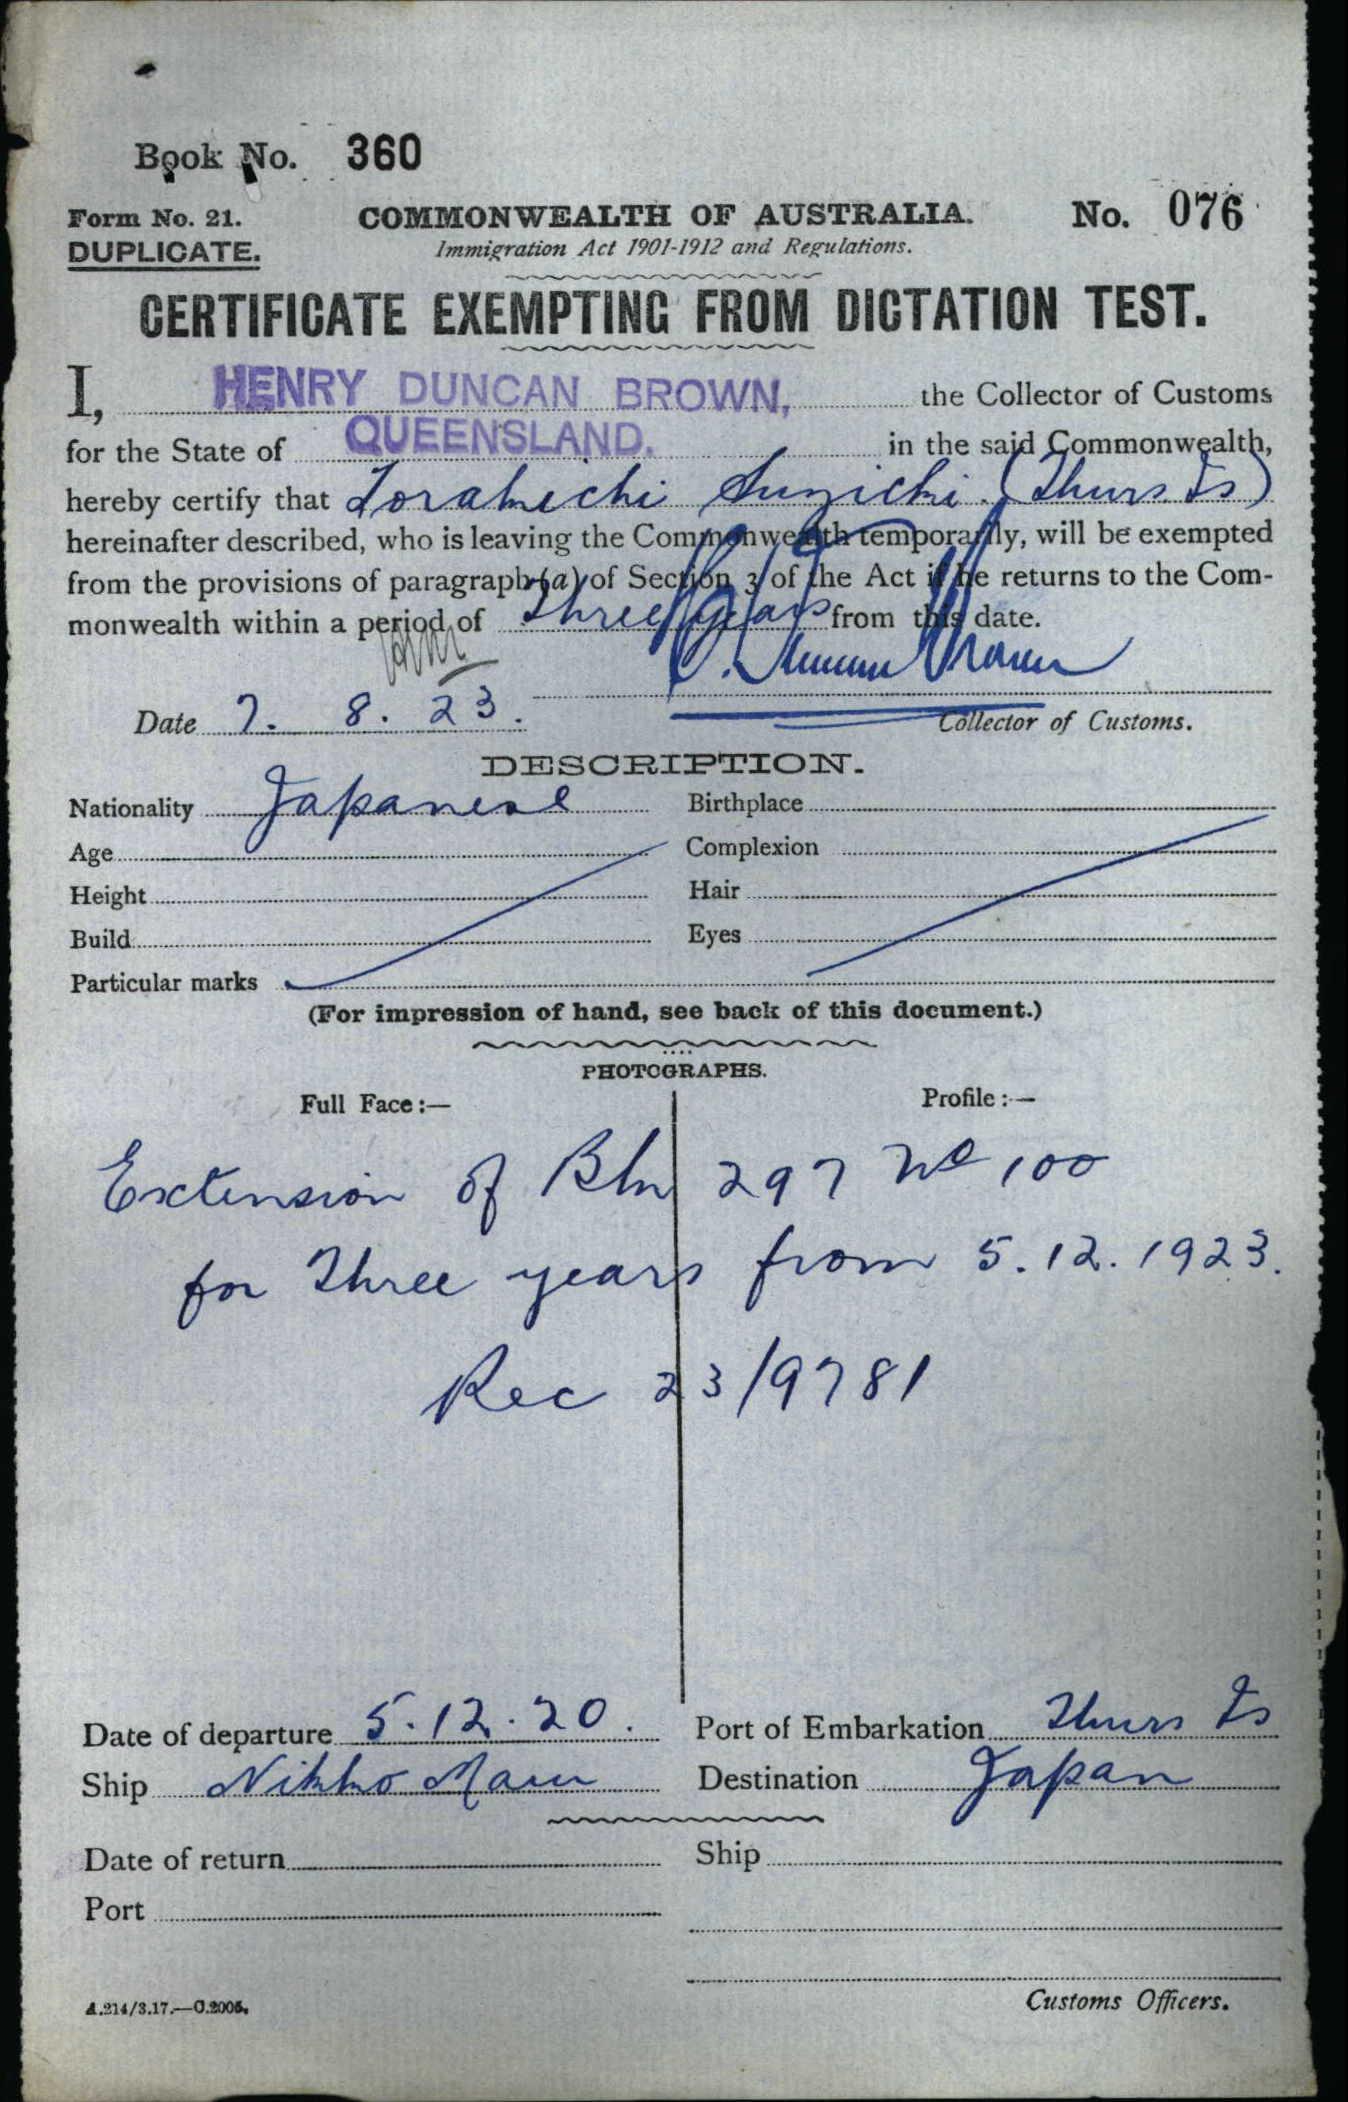 Book No. 360
Form No. 21. COMMONWEALTH OF AUSTRALIA. No. 076
DUPLICATE. Immigration Act 1901-1912 and Regulations.
CERTIFICATE EXEMPTING FROM DICTATION TEST.
I, HENRY DUNCAN BROWN, the Collector of Customs
for the State of QUEENSLAND. in the said Commonwealth,
hereby certify that Torakichi Suzichi (Thurs Is)
hereinafter described, who is leaving the Commonwealth temporarily, will be exempted
from the provisions of paragraph (a) of Section 3 of the Act if he returns to the Com-
monwealth within a period of Three years from this date.
Date 7. 8. 23. Collector of Customs.
DESCRIPTION.
Nationality Japanese Birthplace
Age Complexion
Height Hair
Build Eyes
Particular marks
(For impression of hand, see back of this document.)
PHOTOGRAPHS.
Full Face:— Profile:—
Extension of Bk 297 No 100
for Three years from 5.12.1923.
Rec 23/9781
Date of departure 5.12.20. Port of Embarkation Thurs Is
Ship Nikko Maru Destination Japan
Date of return Ship
Port
Customs Officers.
A.214/3.17.—C.2005.